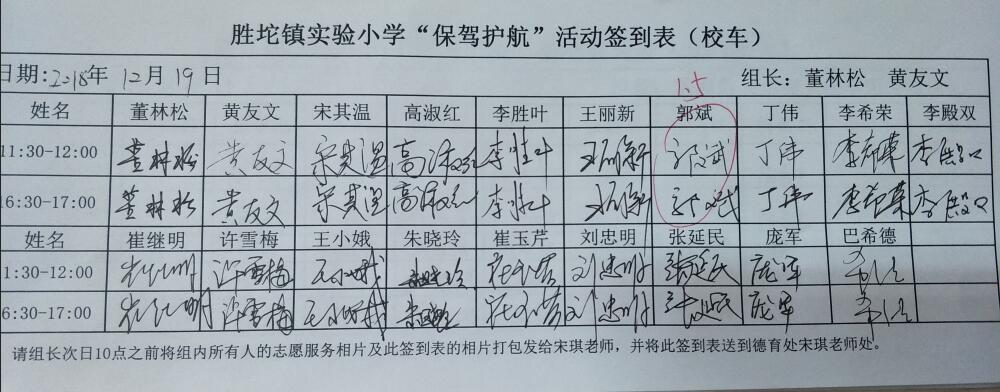 胜坨镇实验小学“保驾护航”活动签到表（校车）
日期:2018年 12月 19日 组长：董林松 黄友文
1.5
姓名 董林松 黄友文 宋其温 高淑红 李胜叶 王丽新 郭斌 丁伟 李希荣 李殿双
11:30-12:00 董林松 黄友文 宋其温 高淑红 李胜叶 王丽新 郭斌 丁伟 李希荣 李殿双
16:30-17:00 董林松 黄友文 宋其温 高淑红 李胜叶 王丽新 郭斌 丁伟 李希荣 李殿双
姓名 崔继明 许雪梅 王小娥 朱晓玲 崔玉芹 刘忠明 张延民 庞军 巴希德
1:30-12:00 崔继明 许雪梅 王小娥 朱晓玲 崔玉芹 刘忠明 张延民 庞军
6:30-17:00 崔继明 许雪梅 王小娥 朱晓玲 崔玉芹 刘忠明 张延民 庞军
请组长次日10点之前将组内所有人的志愿服务相片及此签到表的相片打包发给宋琪老师，并将此签到表送到德育处宋琪老师处。